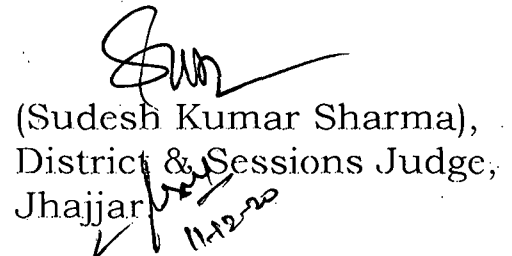 (Sudesh Kumar Sharma),
District & Sessions Judge,
Jhajjar
11-12-20